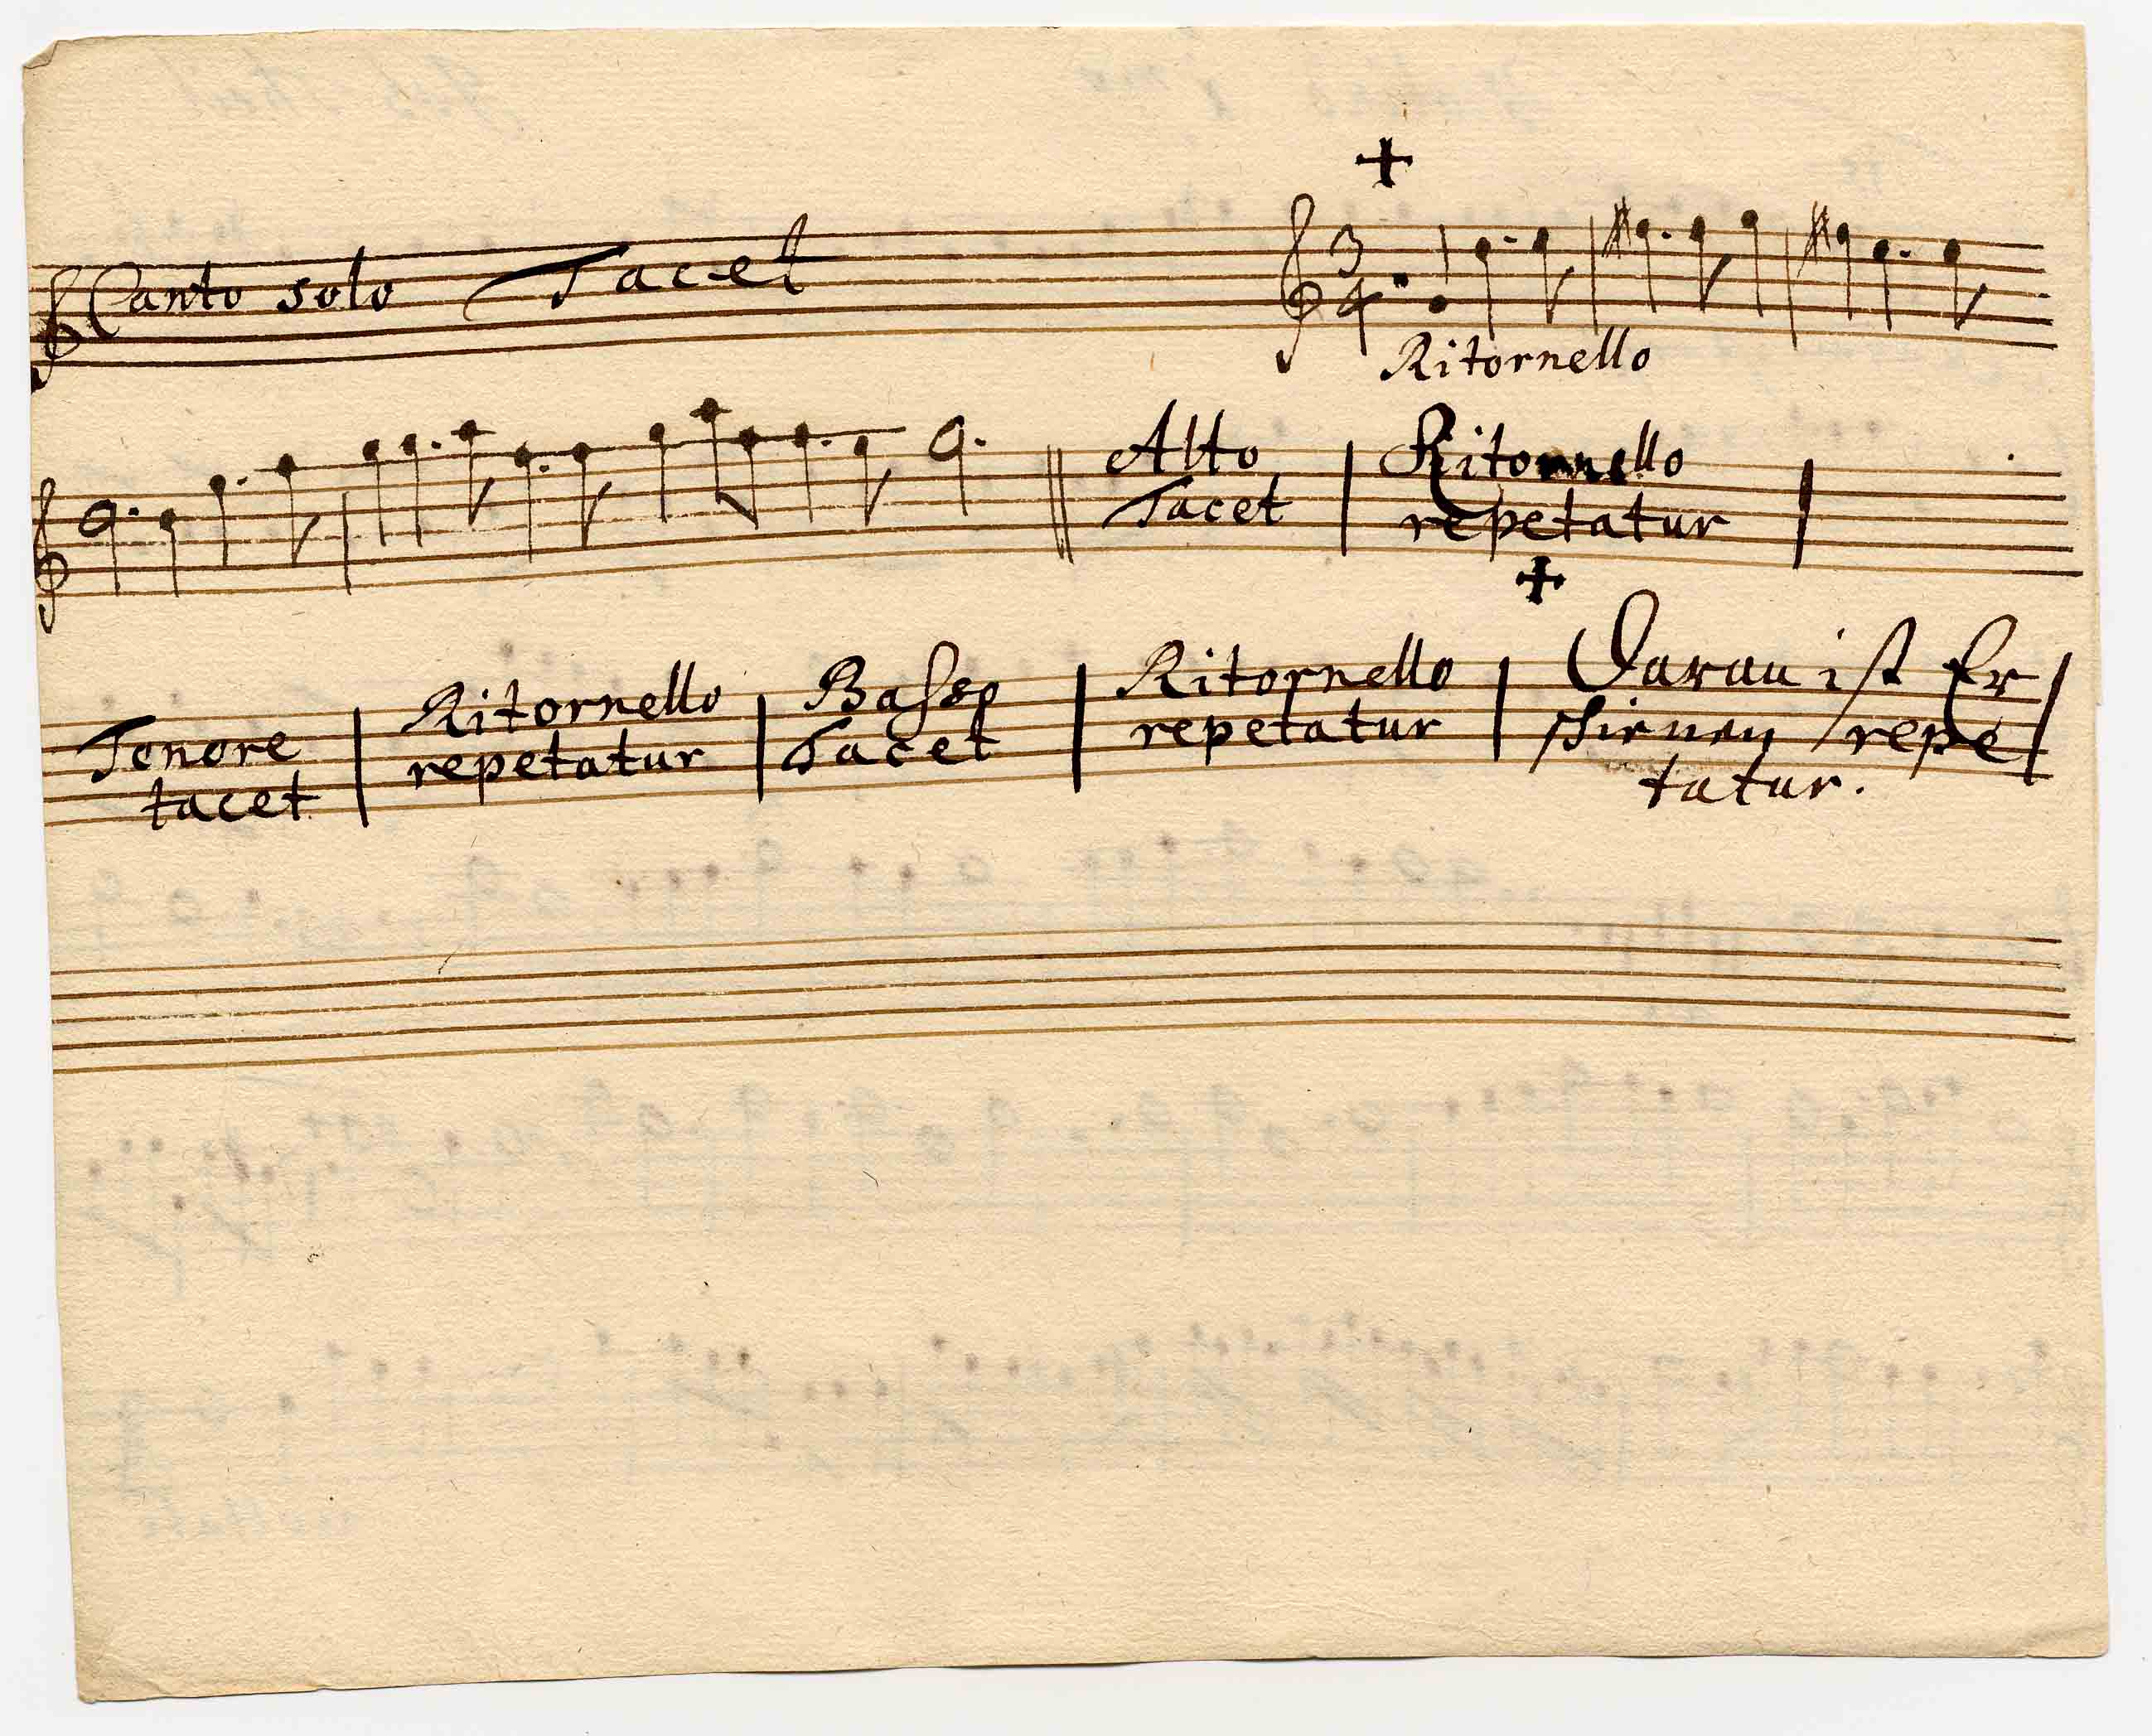 +
Canto solo Tacet
3
4
Ritornello
Alto
Tacet
Ritornello
repetatur
+
Tenore
tacet
Ritornello
repetatur
Basso
Tacet
Ritornello
repetatur
Daran ist Er
schienen repe
tatur.